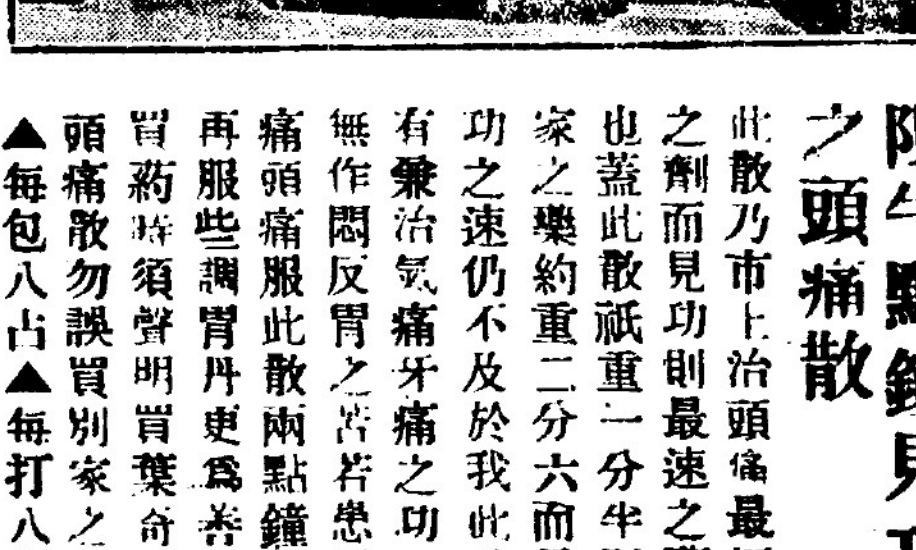 陣半點鐘見
之頭痛散
此散乃市上治頭痛最
之劑而見功則最速之
也蓋此散祇重一分半
家之藥約重二分六而
功之速仍不及於我此
有兼治氣痛牙痛之功
無作悶反胃之苦若患
痛頭痛服此散兩點鐘
再服些調胃丹更為善
買药時須聲明買葉奇
頭痛散勿誤買別家之
▲每包八占▲每打八